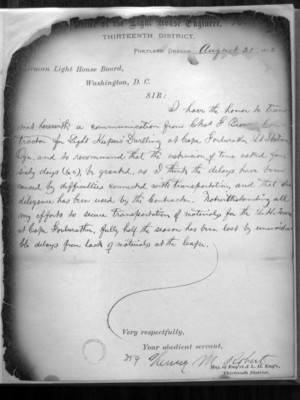 Office of the Light House Engineer,
THIRTEENTH DISTRICT,
PORTLAND OREGON, August 21
Chairman Light House Board,
Washington, D. C.
SIR:
I have the honor to trans
mit herewith a communication from Chas F Con
tractor for Light Keeper's Dwelling at Cape Foulweather Lt Station
Ogn, and to recommend that the extension of time asked for
sixty days (60), be granted, as I think the delays have been
caused by difficulties connected with transportation, and that due
diligence has been used by the Contractor. Notwithstanding all
my efforts to secure transportation of materials for the L.H. Tower
at Cape Foulweather, fully half the season has been lost by unavoida
ble delays from lack of materials at the Cape.
Very respectfully,
Your obedient servant,
Henry M Robert
Maj. of Eng'rs & L. H. Eng'r,
Thirteenth District.